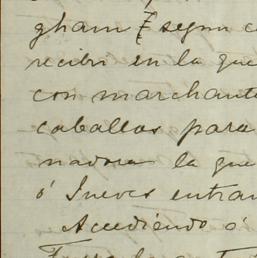 gham Z segun c
recibi en la que
con marchante
caballos para
nadora la que
ó Jueves entran
Accediendo ó